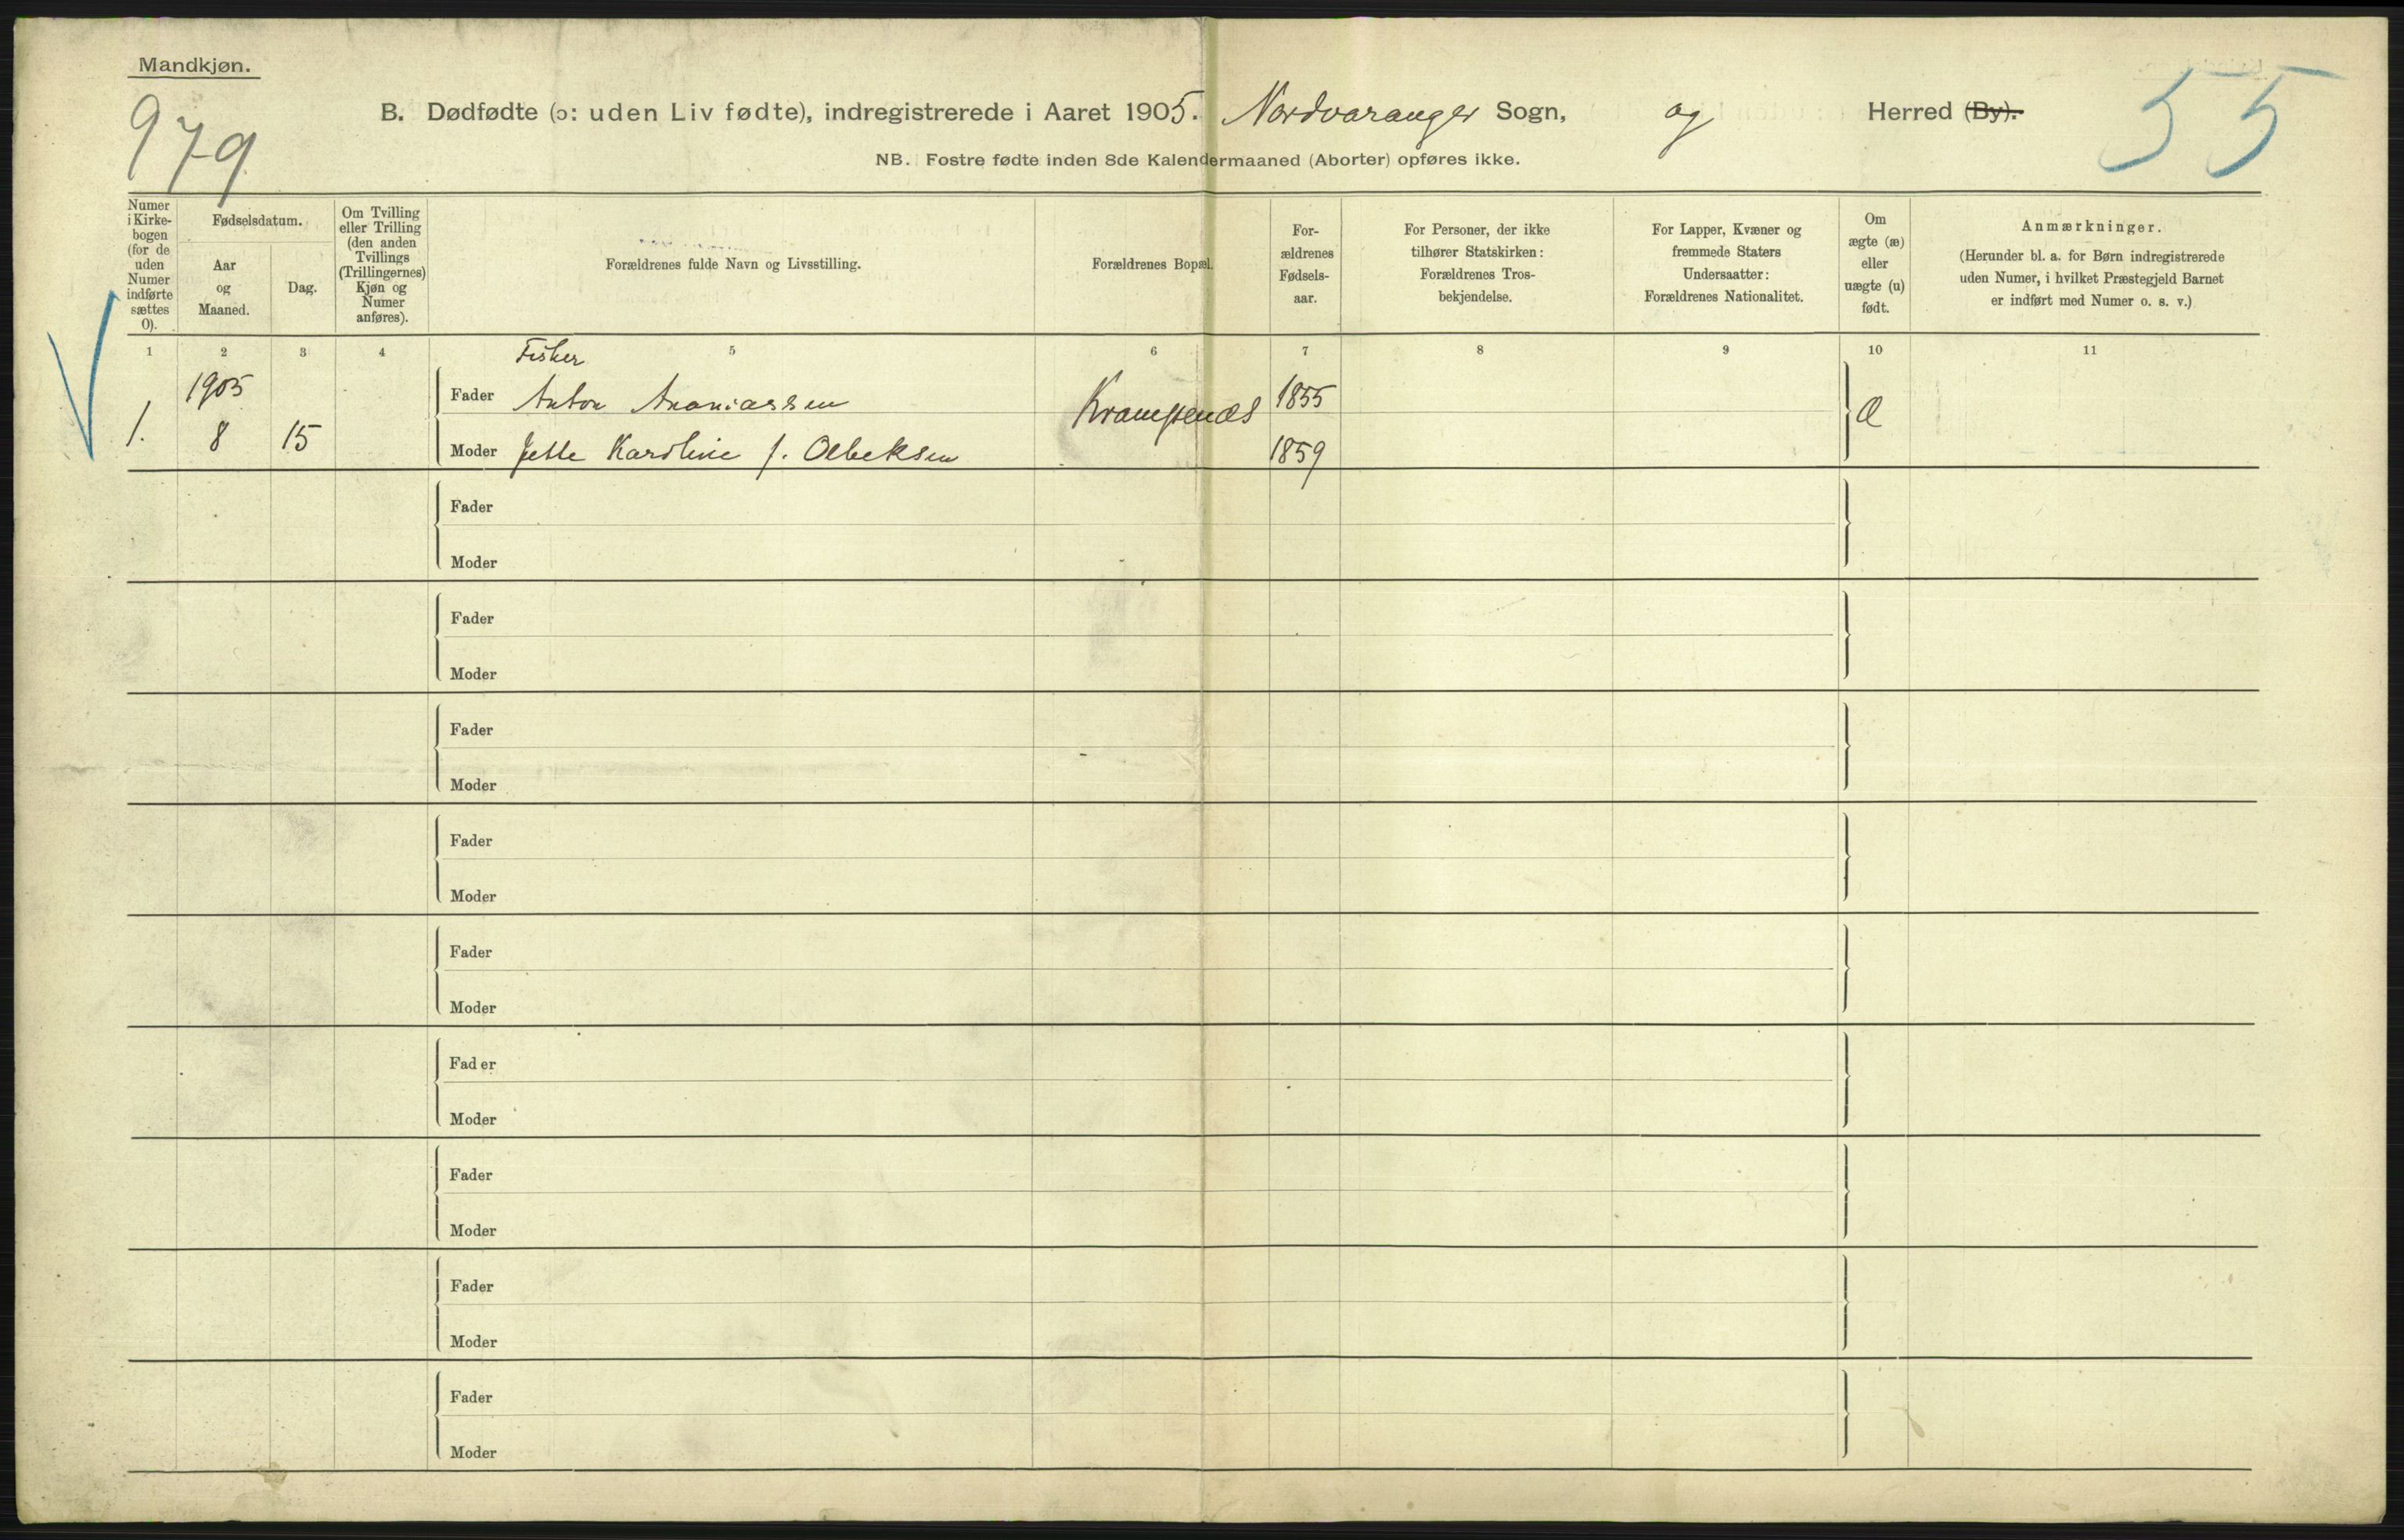 Mandkjøn.
979
B. Dødfødte (ɔ: uden Liv fødte), indregistrerede i Aaret 1905. Nordvaranger Sogn, og Herred (By).
55
NB. Fostre fødte inden 8de Kalendermaaned (Aborter) opføres ikke.
Numer i Kirkebogen (for de uden Numer indførte sættes 0).
Fødselsdatum.
Aar og Maaned.
Dag.
Om Tvilling eller Trilling (den anden Tvillings (Trillingernes) Kjøn og Numer anføres).
Forældrenes fulde Navn og Livsstilling.
Forældrenes Bopæl.
For-
ældrenes
Fødsels-
aar.
For Personer, der ikke
tilhører Statskirken:
Forældrenes Tros-
bekjendelse.
For Lapper, Kvæner og
fremmede Staters
Undersaatter:
Forældrenes Nationalitet.
Om
ægte (æ)
eller
uægte (u)
født.
Anmærkninger.
(Herunder bl. a. for Børn indregistrerede
uden Numer, i hvilket Præstegjeld Barnet
er indført med Numer o. s. v.)
1 2 3 4 5 6 7 8 9 10 11
Fisker
1905 Fader Anton Ananiassen 1855
Krampenæs æ
1. 8 15 Moder Jette Karoline f. 1859
Fader
Moder
Fader
Moder
Fader
Moder
Fader
Moder
Fader
Moder
Fader
Moder
Fader
Moder
Fader
Moder
Fader
Moder